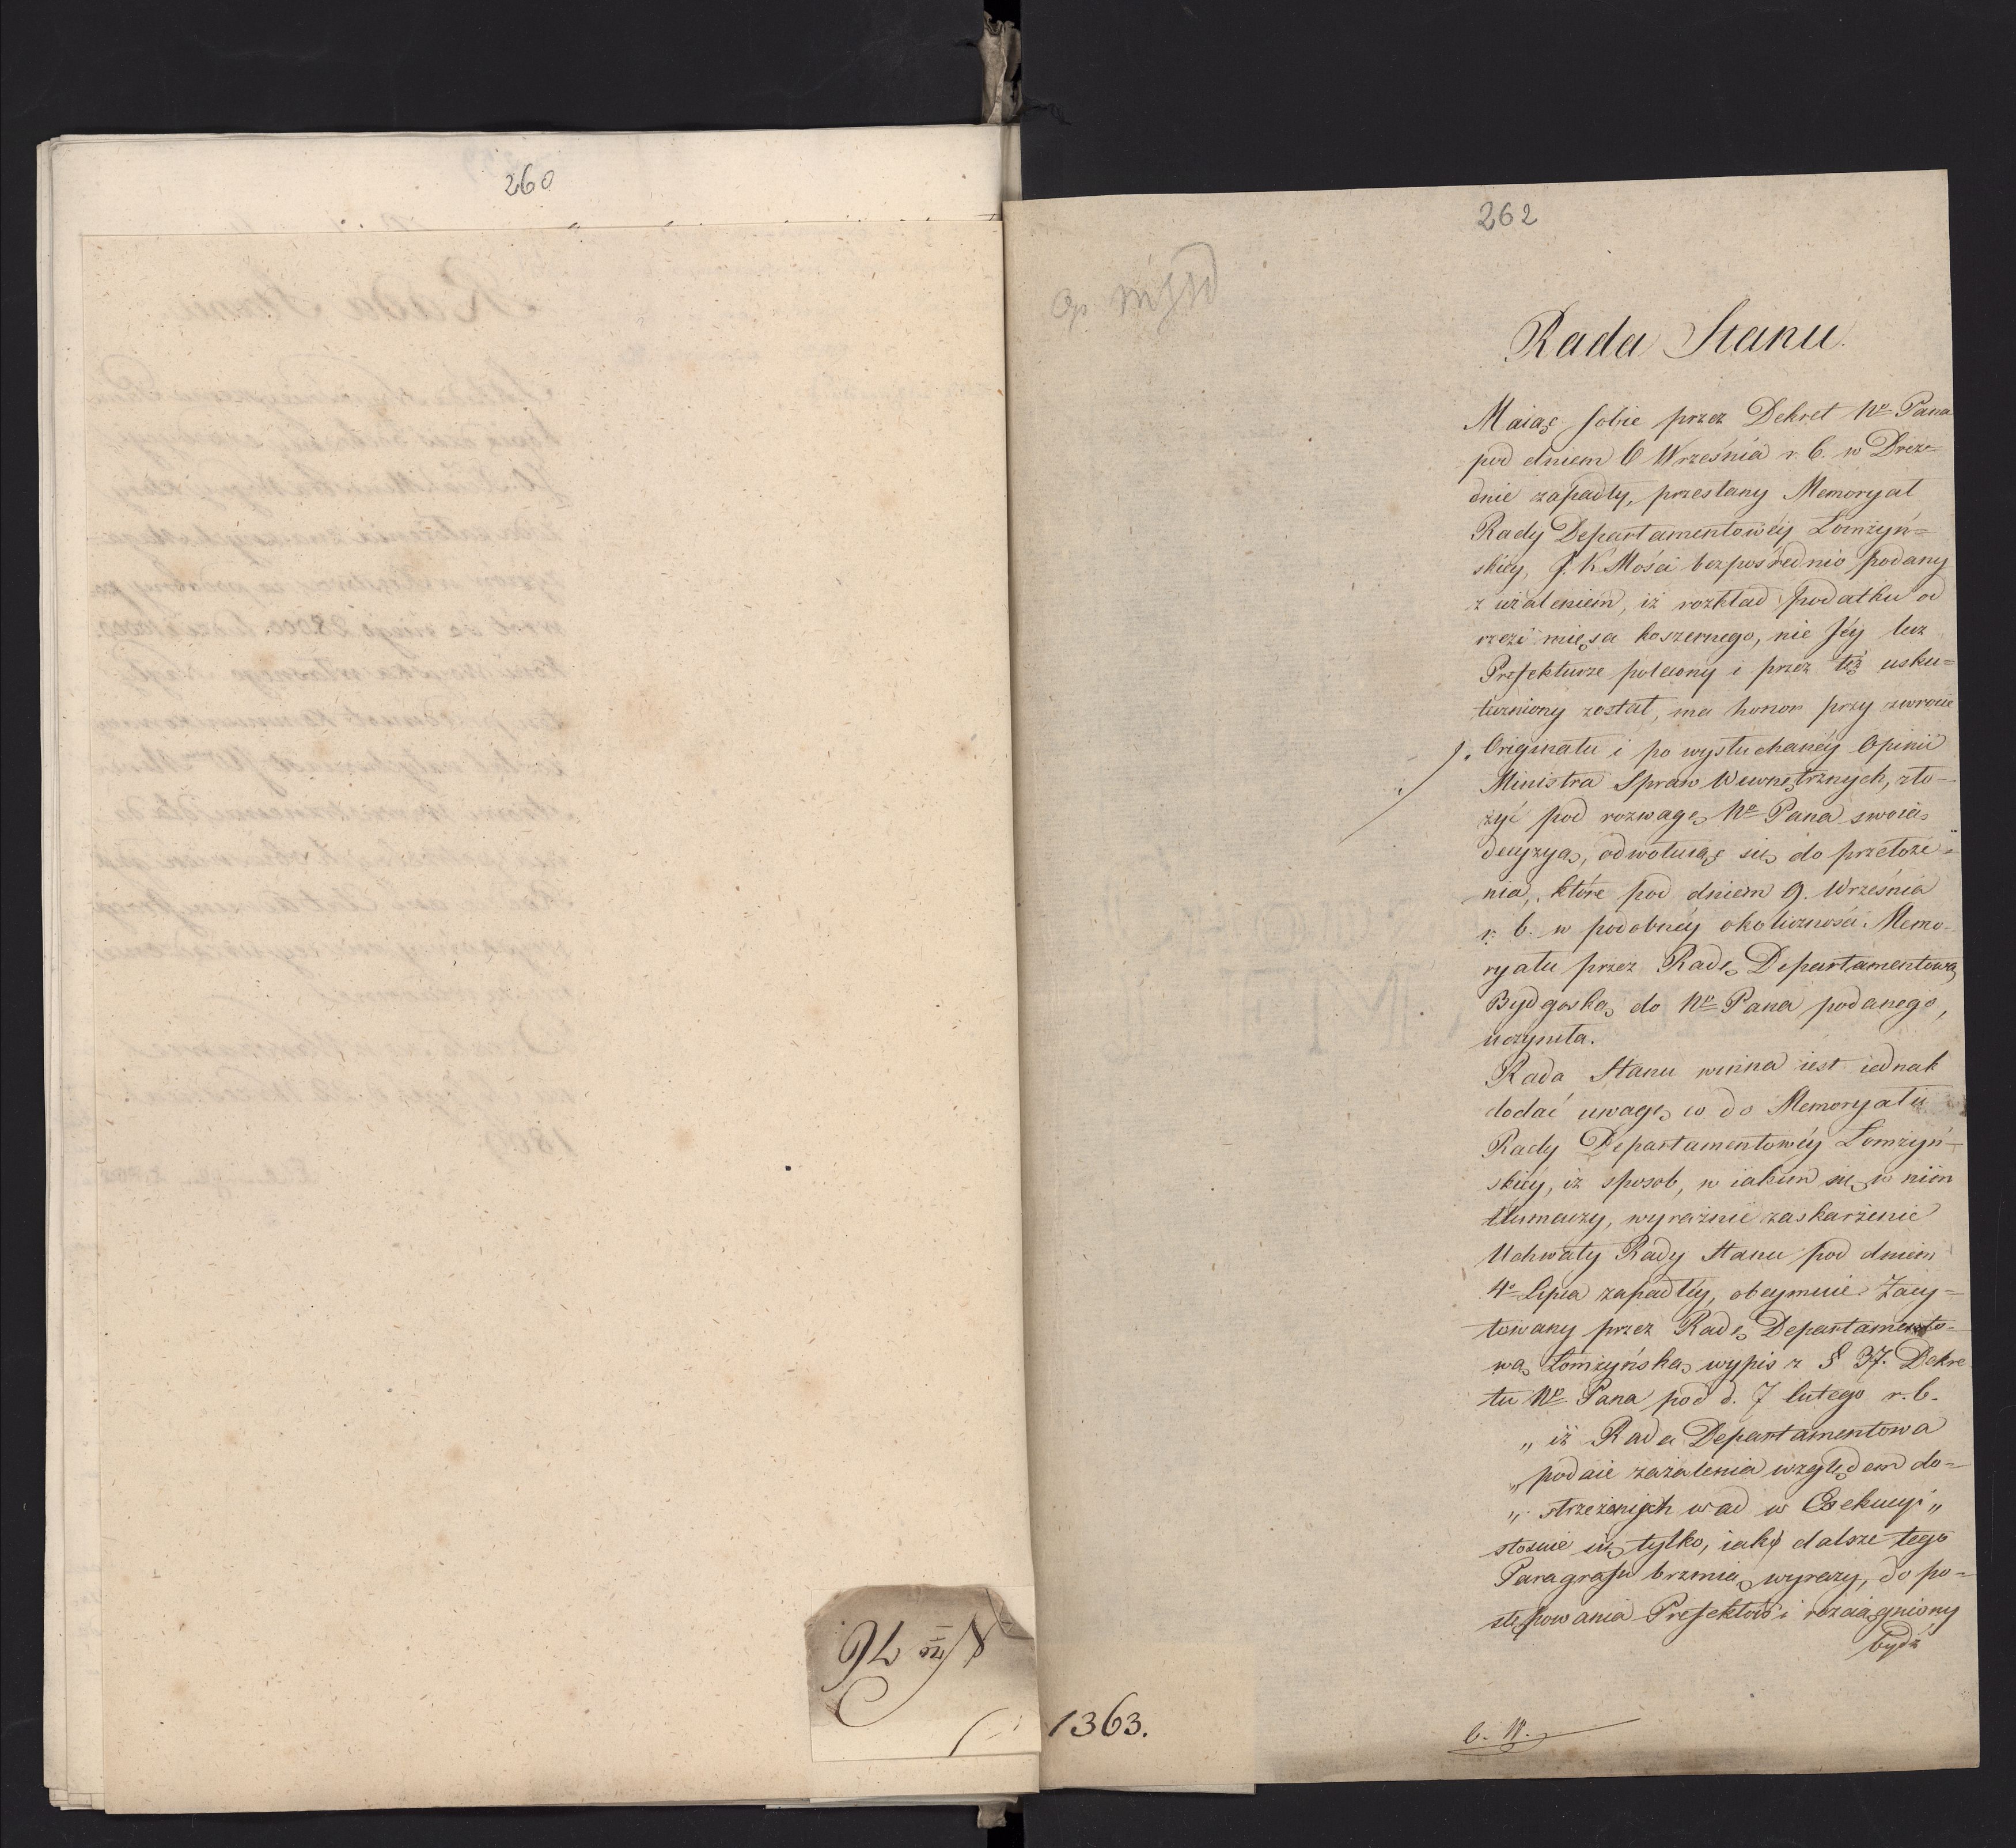 260
262
Rada Stanu.
Maiąc sobie przez Dekret Nº Pana
pod dniem 6 Września r. b. w Drez=
dnie zapadły, przesłany Memoryał
Rady Departamentowéy Łomżyń=
skiéy, J. K. Mości bezpośrednio podany
z użaleniem, iż rozkład podatku od
rzezi mięsa koszernego, nie Jéy lecz
Prefekturze polecony i przez tęż usku=
teczniony został, ma honor przy zwrocie
Originału i po wysłuchanéy Opinii
Ministra Spraw Wewnętrznych, zło=
żyć pod rozwagę Nº Pana swoią
decyzyą, odwołuiąc się do przełoże=
nia, które pod dniem 9. Września
r. b. w podobnéy okoliczności Memo=
ryału przez Radę Departamentową
Bydgoską do Nº Pana podanego,
uczyniła.
Rada Stanu winna iest iednak
dodać uwagę co do Memoryału
Rady Departamentowéy Łomżyń=
skiéy, iż sposob, w iakim się w nim
tłumaczy, wyraźnie zaskarżenie
Uchwały Rady Stanu pod dniem
4º Lipca zapadłéy, obeymuie. Zacy=
towany przez Radę Departamento=
wą Łomżyńską wypis z § 37. Dekre
tu Nº Pana pod d. 7 lutego r. b.
„ iż Rada Departamentowa
„ podaie zażalenia względem do=
„ strzeżonych wad w Exekucyi „
stosuie się tylko, iako dalsze tego
Paragrafu brzmią wyrazy, do po=
stępowania Prefektów i rozciągniony
bydź
1363.